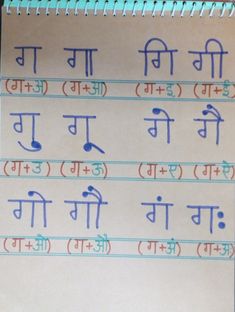 ग गा गि गी
(ग+अ) (ग+आ) (ग+इ) (ग+ई)
गु गू गे गै
(ग+उ) (ग+ऊ) (ग+ए) (ग+ऐ)
गो गौ गं गः
(ग+ओ) (ग+औ) (ग+अं) (ग+अः)